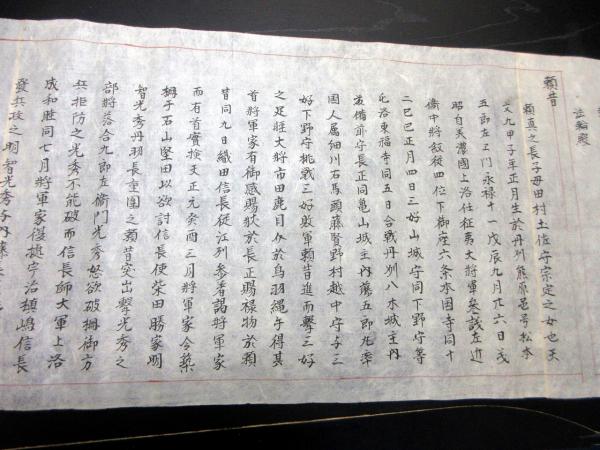 法輪殿
頼昔
頼真之長子母田村土佐守宗定之女也天
文九甲子年正月生於丹州熊原邑号松本
五郎左ヱ門永禄十一戊辰九月廿六日義
昭自美濃國上洛仕征夷大将軍参議左近
衛中将叙従四位下御座六条本國寺同十
二己巳正月四日三好山城守同下野守等
圮洛東福寺同五日合戦丹州八木城主内
藤備前守長正同亀山城主内藤五郎九率
国人属細川右馬頭藤賢野村越中守与三
好下野守挑戦三好敗軍頼昔進而撃三好
之足軽大将市田鹿目介於鳥羽縄手得其
首将軍家有御感賜荻於長正賜禄物於頼
昔同九日織田信長従江列参着謁将軍家
而有首實検天正元癸酉三月将軍家令築
柵于石山堅田以欲討信長使柴田勝家明
智光秀丹羽長重圍之頼昔突出撃光秀之
部将落合九郎左衛門光秀怒欲破柵御方
兵拒防之光秀不能破而信長師大軍上洛
成和睦同七月将軍家復拠宇治槙嶋信長
發兵攻之明智光秀与内藤